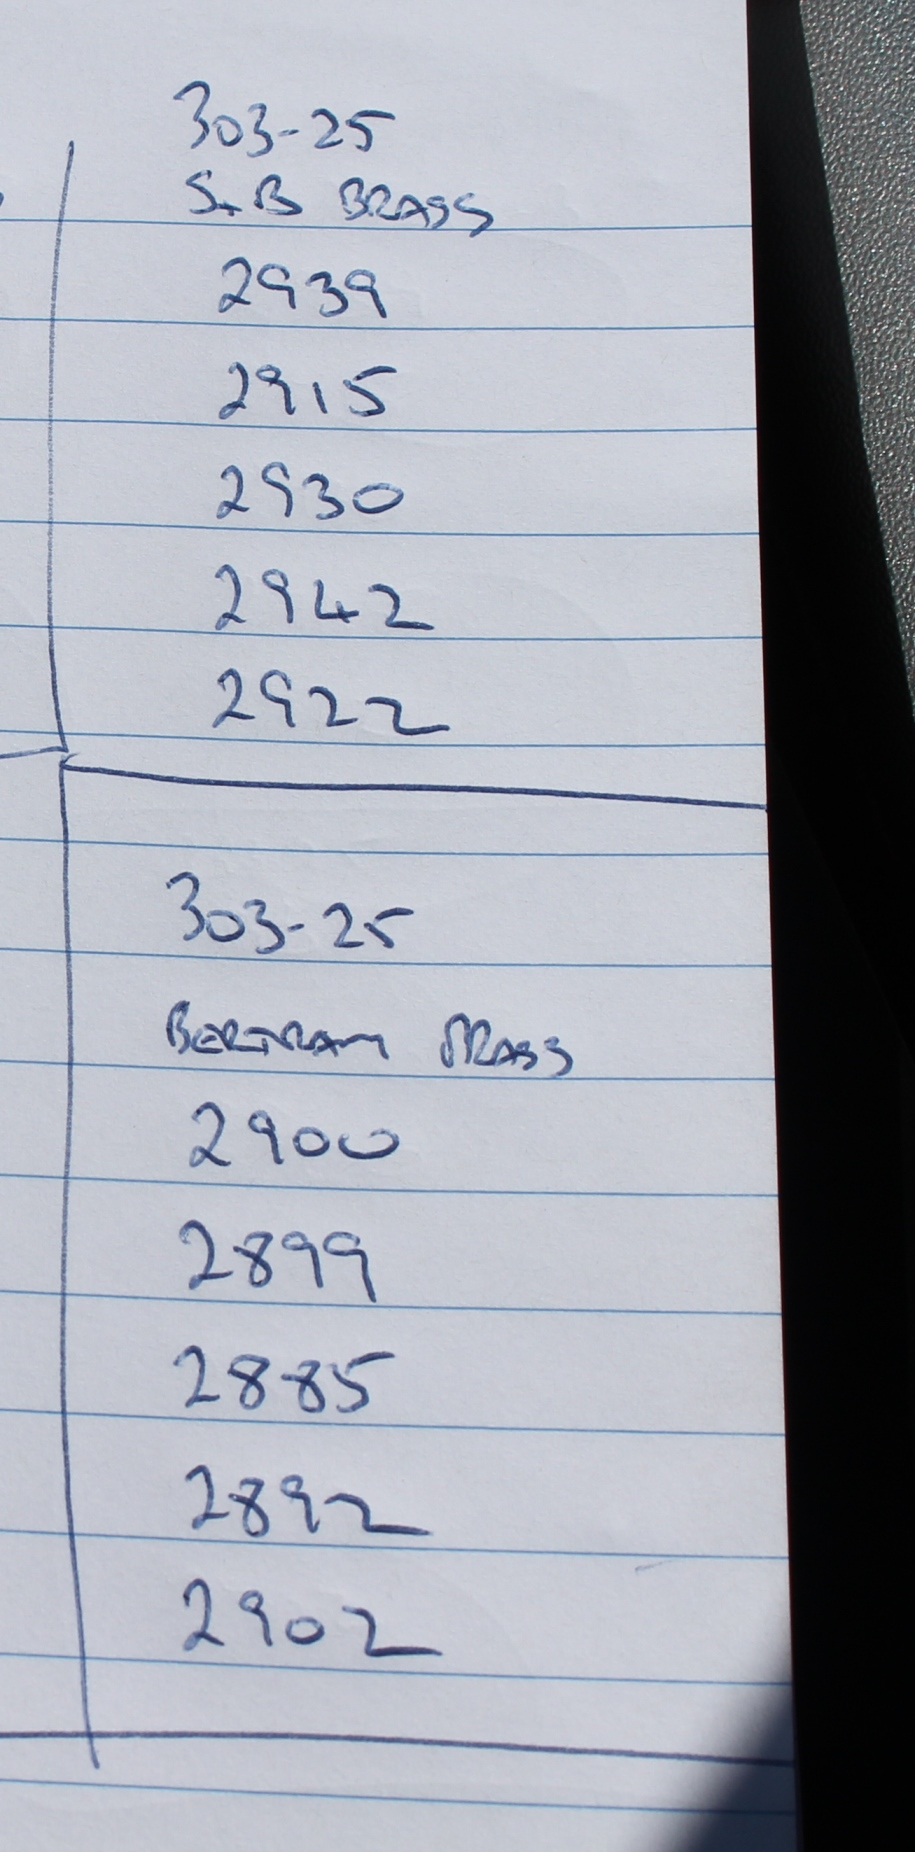 303-25
S+B BRASS
2939
2915
2930
2942
2922
303-25
BERTRAM BRASS
2900
2899
2885
2892
2902